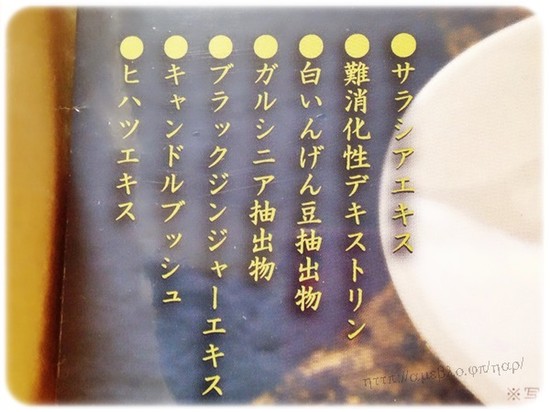 ●サラシアエキス
●難消化性デキストリン
●白いんげん豆抽出物
●ガルシニア抽出物
●ブラックジンジャーエキス
●キャンドルブッシュ
●ヒハツエキス
※写